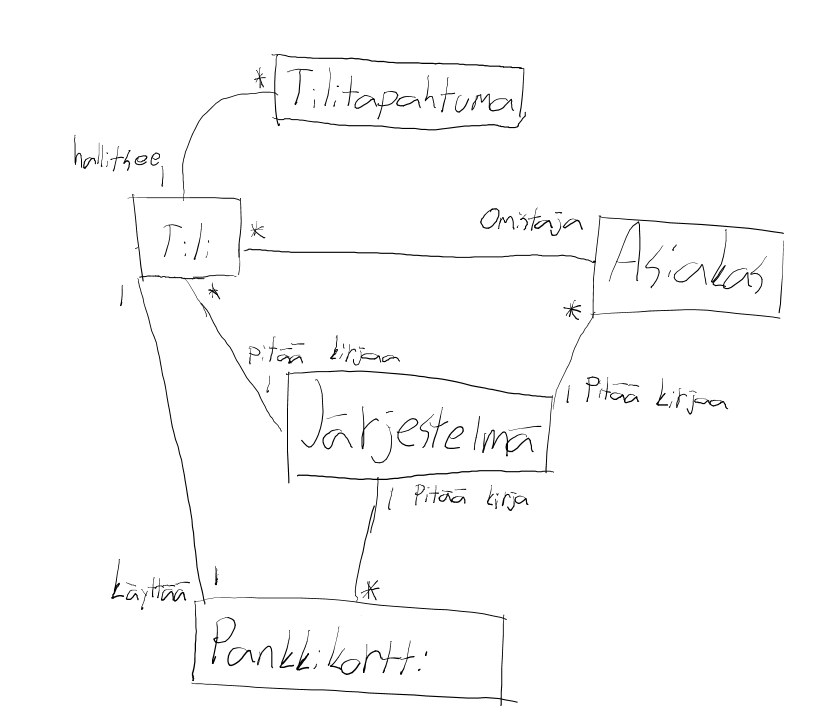 *
Tilitapahtuma
hallitsee
1
Tili
*
Omistaja
Asiakas
1
*
*
pitää kirjaa
1
1 Pitää kirjaa
Järjestelmä
1 Pitää kirja
käyttää
1
*
Pankkikortti